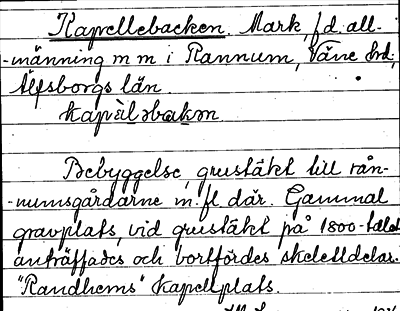 Kapellebacken. Mark, f.d. all-
-männing m m i Rannum, Väne hd,
Älfsborgs län.
kapèləbakən
Bebyggelse, grustäkt till rån-
-numsgårdarne m. fl. där. Gammal
gravplats, vid grustäkt på 1800-talet
anträffades och bortfördes skelettdelar.
"Randhems" kapellplats.